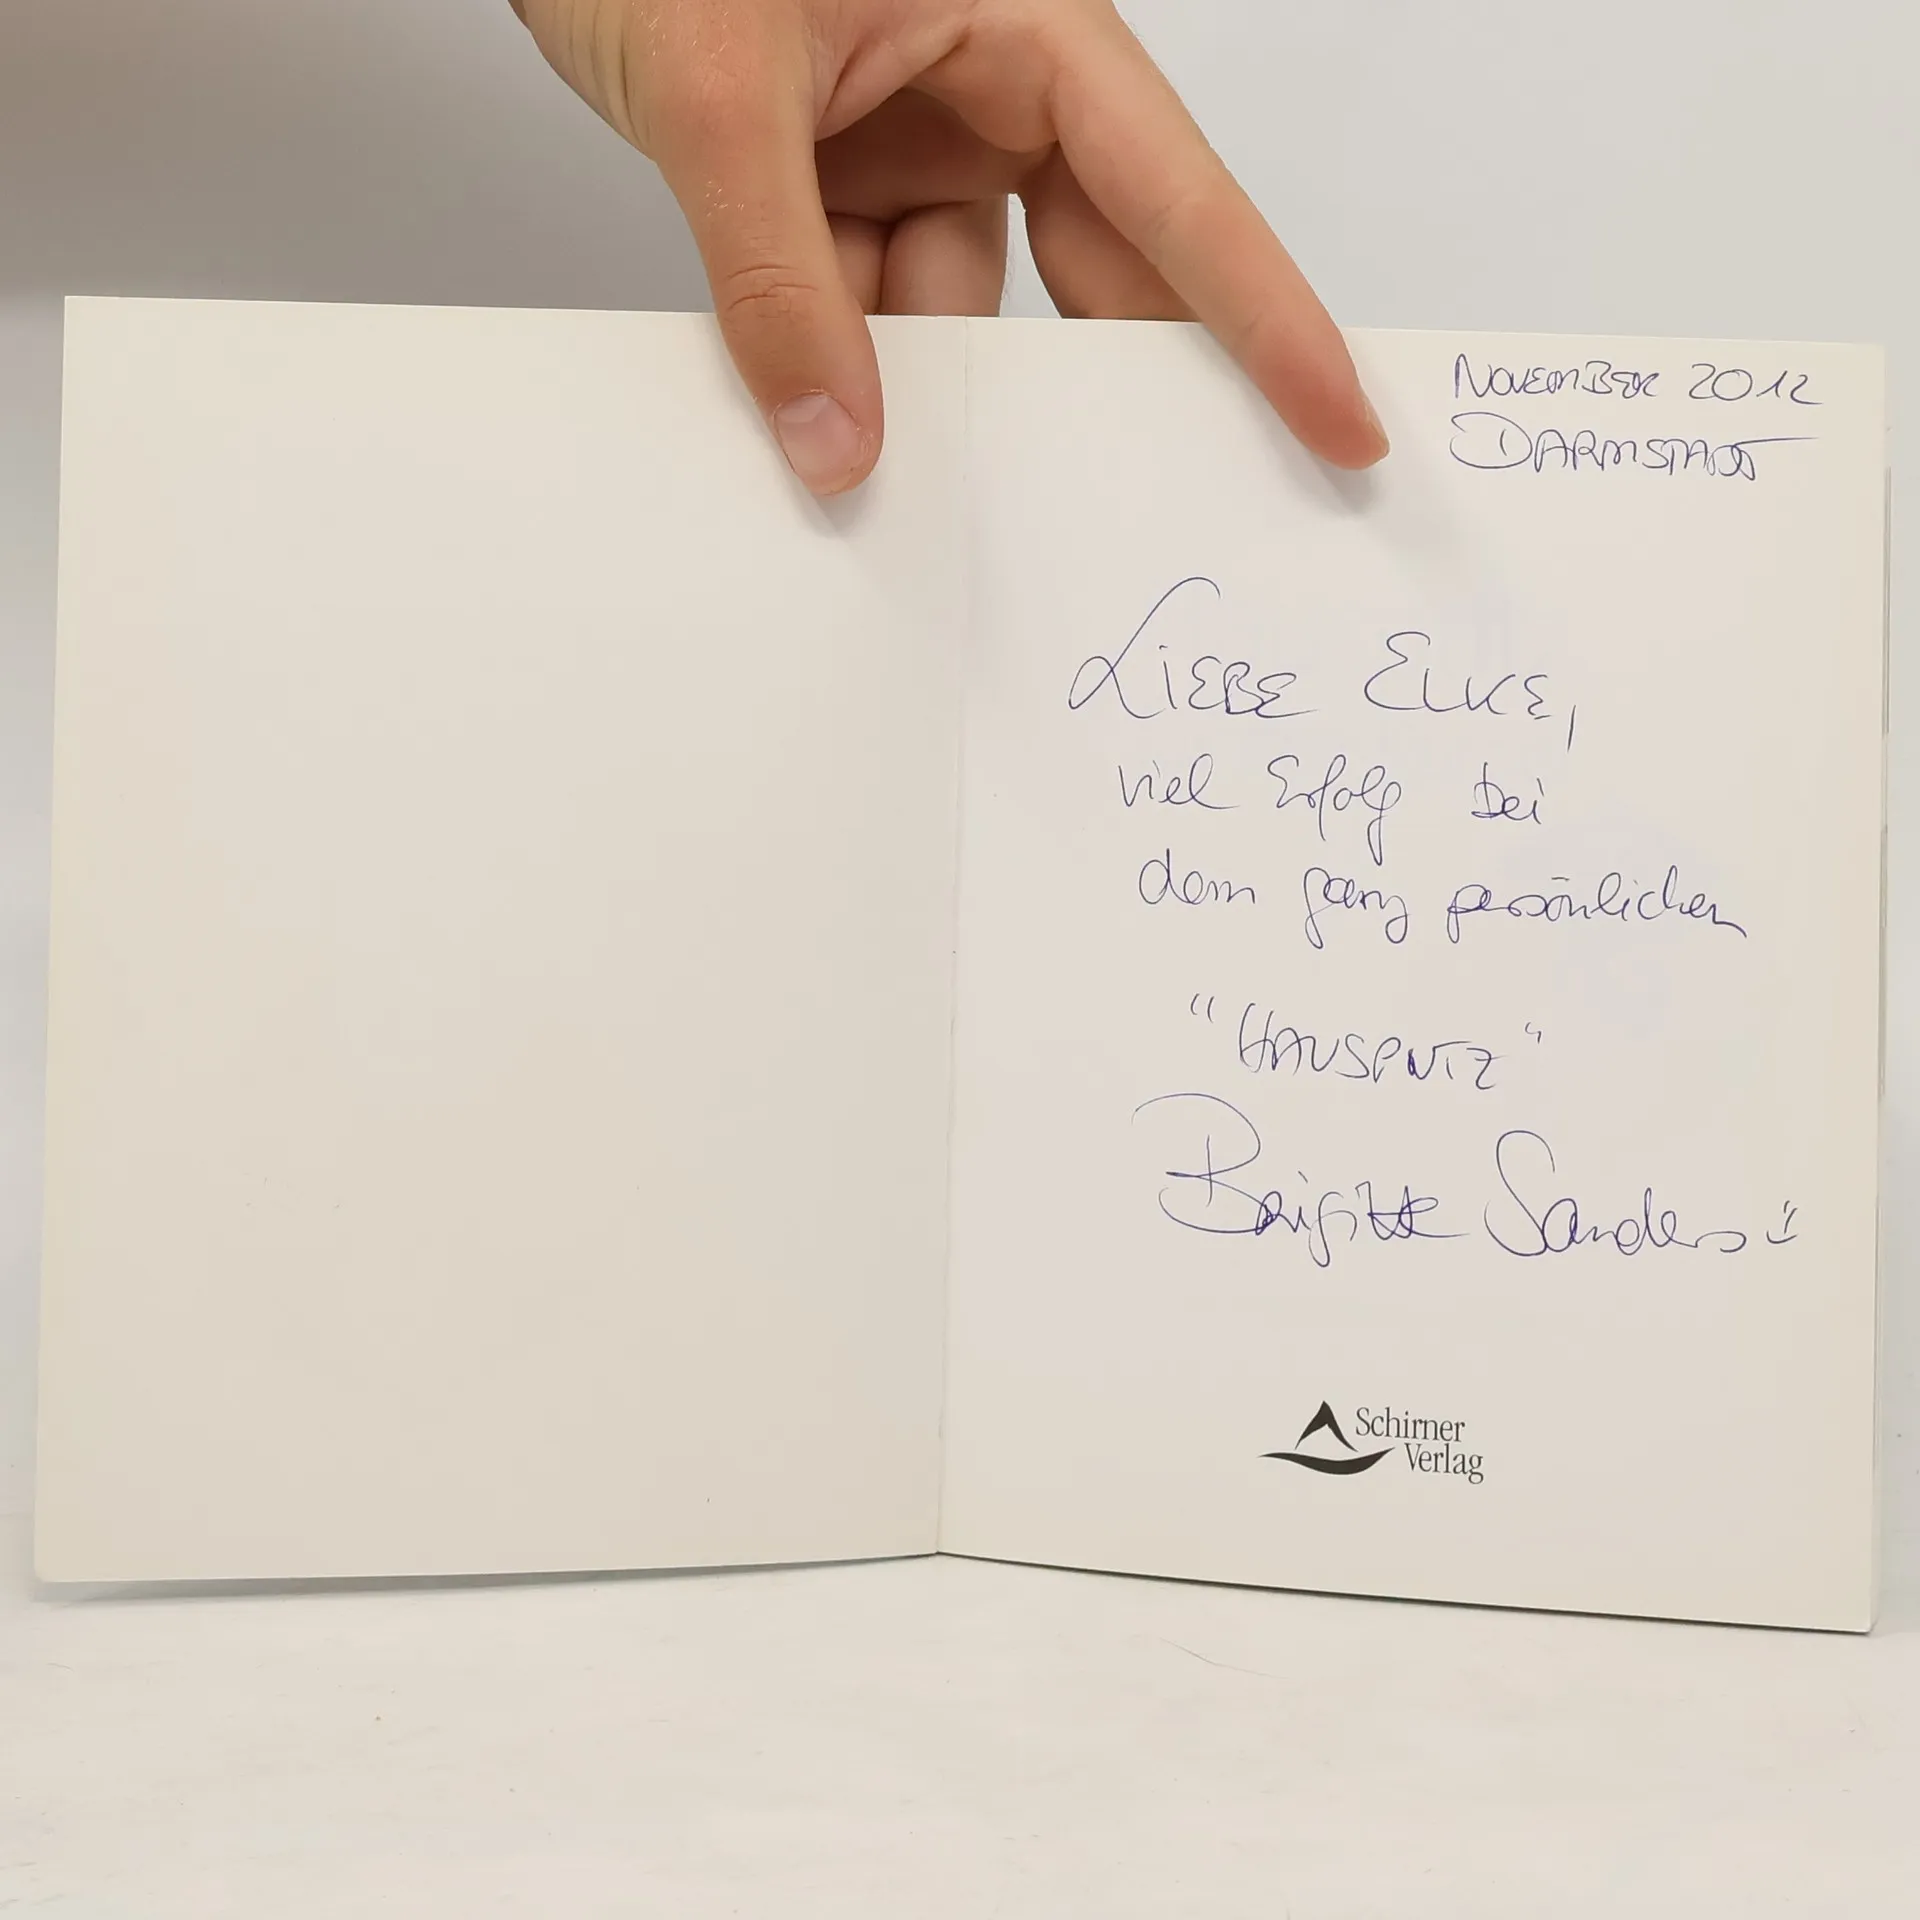 NOVEMBER 2012
DARMSTADT
LIEBE ELKE,
viel Erfolg bei
dem ganz persönlichen
"HAUSPUTZ"
Brigitte Sanders
Schirner
Verlag